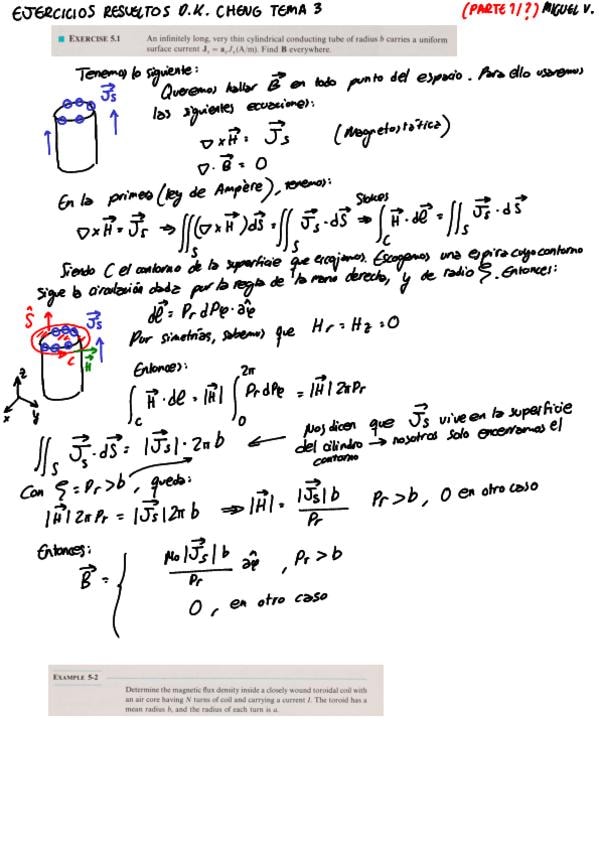 EJERCICIOS RESUELTOS D.K. CHENG TEMA 3 (PARTE 1/?) MIGUEL V.
EXERCISE 5.1 An infinitely long, very thin cylindrical conducting tube of radius b carries a uniform
surface current Jₛ = a_z Jₛ (A/m). Find B everywhere.
Tenemos lo siguiente:
Queremos hallar B⃗ en todo punto del espacio. Para ello usaremos
las siguientes ecuaciones:
J⃗s
∇×H⃗ = J⃗s (Magnetostática)
∇·B⃗ = 0
En la primera (ley de Ampère), tenemos:
∇×H⃗ = J⃗s ⇒ ∬_S (∇×H⃗)dS⃗ = ∬_S J⃗s·dS⃗ ⇒ Stokes ∫_C H⃗·dl⃗ = ∬_S J⃗s·dS⃗
Siendo C el contorno de la superficie que escojamos. Escogemos una espira cuyo contorno
sigue la circulación dada por la regla de la mano derecha, y de radio ζ. Entonces:
dl⃗ = Pr dPφ · âφ
Ŝ J⃗s
C H⃗
Por simetrías, sabemos que Hr = Hz = 0
z
x y
Entonces:
∫_C H⃗·dl⃗ = |H⃗| ∫_0^{2π} Pr dPφ = |H⃗| 2π Pr
∬_S J⃗s·dS⃗ = |J⃗s|·2πb ← Nos dicen que J⃗s vive en la superficie
del cilindro → nosotros solo encerramos el
contorno
Con ζ = Pr > b, queda:
|H⃗| 2π Pr = |J⃗s| 2π b ⇒ |H⃗| = |J⃗s| b / Pr Pr > b, 0 en otro caso
Entonces:
B⃗ = { μ₀ |J⃗s| b / Pr âφ , Pr > b
0, en otro caso
EXAMPLE 5-2
Determine the magnetic flux density inside a closely wound toroidal coil with
an air core having N turns of coil and carrying a current I. The toroid has a
mean radius b, and the radius of each turn is a.